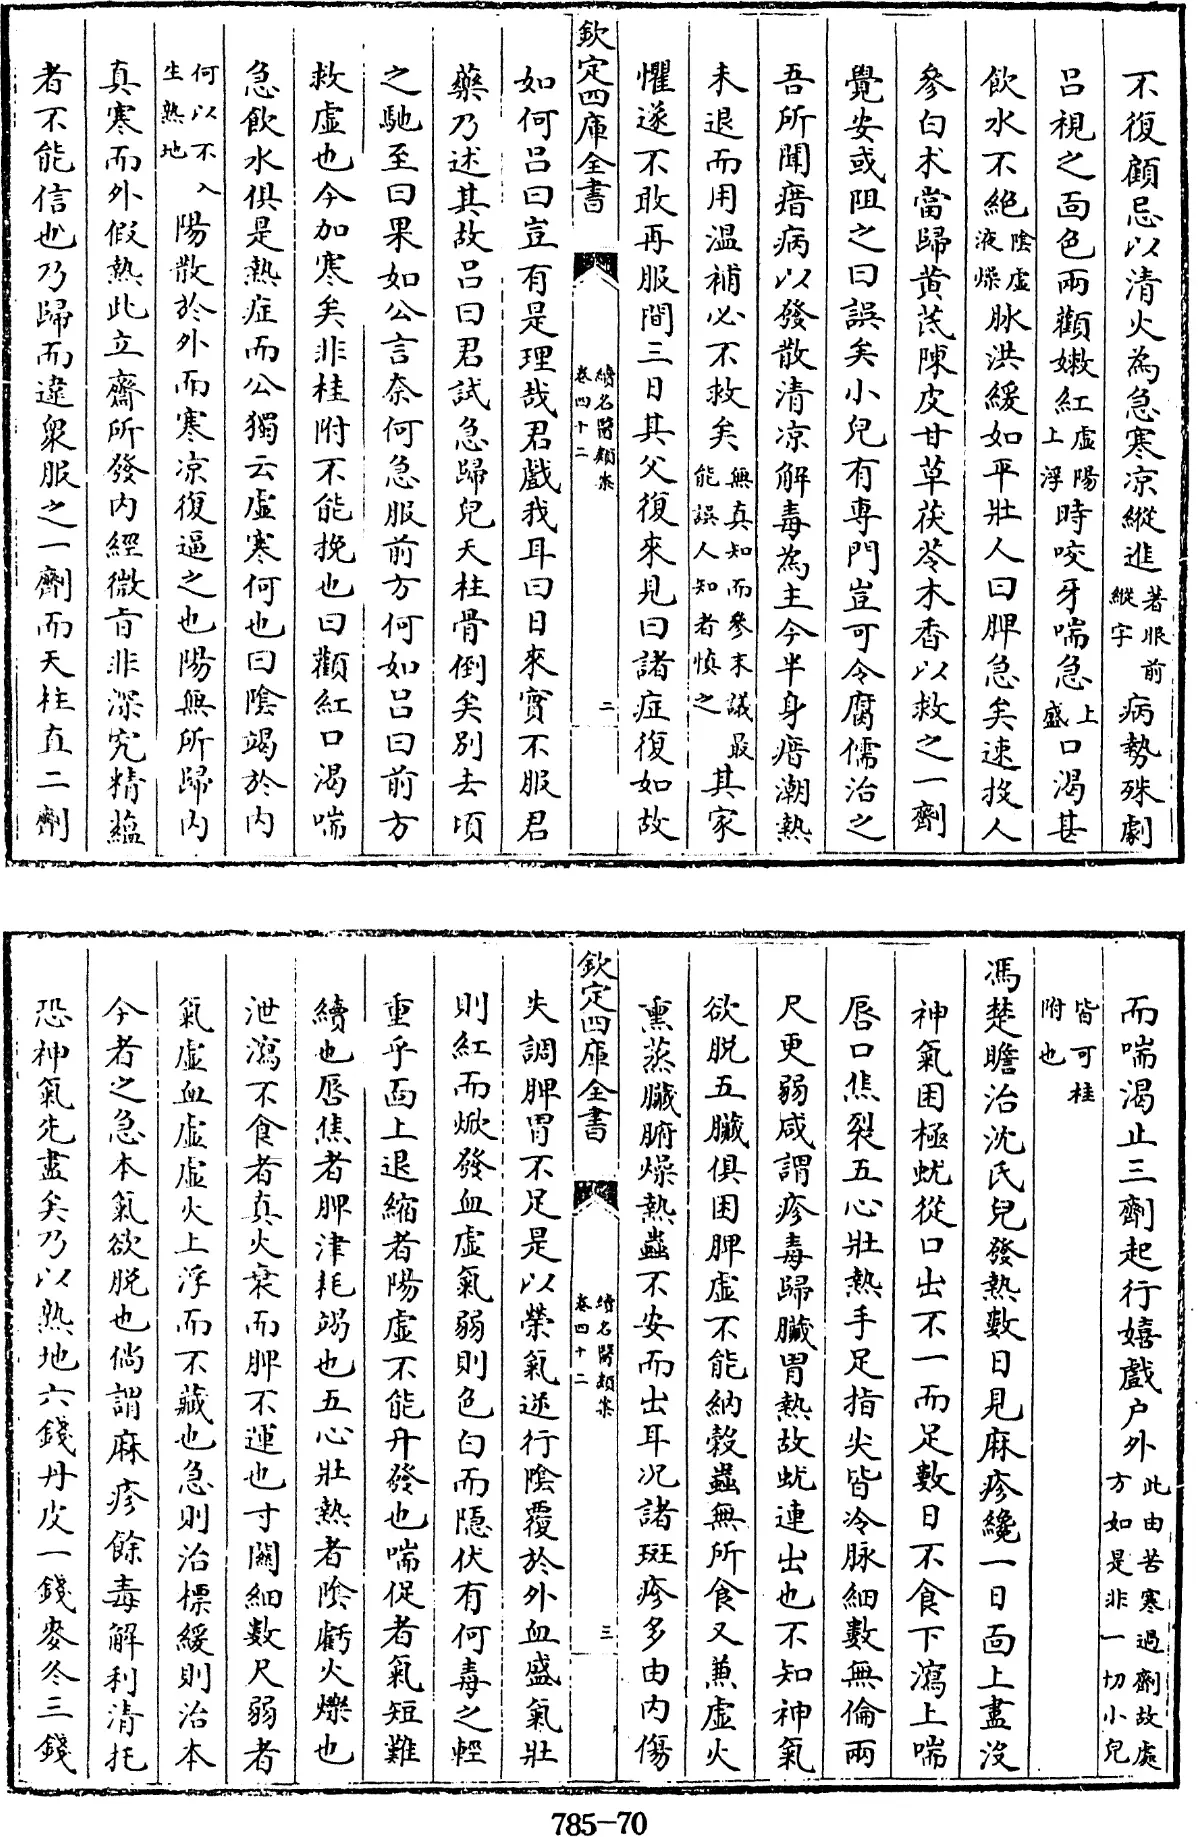 不復顧忌以清火為急寒凉縱進著眼前縱字病勢殊劇
呂視之面色兩顴嫩紅虛陽上浮時咬牙喘急上盛口渴甚
飲水不絕陰虛液燥脉洪緩如平壯人曰脾急矣速投人
參白朮當歸黄芪陳皮甘草茯苓木香以救之一劑
覺安或阻之曰誤矣小兒有專門豈可令腐儒治之
吾所聞瘄病以發散清凉解毒為主今半身瘄潮熱
未退而用温補必不救矣無真知而參末議最能誤人知者慎之其家
懼遂不敢再服間三日其父復來見曰諸症復如故
欽定四庫全書
續名醫類案
卷四十二
二
如何呂曰豈有是理哉君戲我耳曰日來實不服君
藥乃述其故呂曰君試急歸兒天柱骨倒矣别去頃
之馳至曰果如公言奈何急服前方何如呂曰前方
救虛也今加寒矣非桂附不能挽也曰顴紅口渴喘
急飲水俱是熱症而公獨云虛寒何也曰陰竭於内
何以不入生熟地陽散於外而寒凉復逼之也陽無所歸内
真寒而外假熱此立齋所發内經微旨非深究精藴
者不能信也乃歸而違衆服之一劑而天柱直二劑
而喘渴止三劑起行嬉戲户外此由苦寒過劑故處方如是非一切小兒
皆可桂附也
馮楚瞻治沈氏兒發熱數日見麻疹纔一日面上盡没
神氣困極蚘從口出不一而足數日不食下瀉上喘
唇口焦裂五心壯熱手足指尖皆冷脉細數無倫兩
尺更弱咸謂疹毒歸臟胃熱故蚘連出也不知神氣
欲脱五臟俱困脾虛不能納榖蟲無所食又兼虛火
熏蒸臟腑燥熱蟲不安而出耳况諸斑疹多由内傷
欽定四庫全書
續名醫類案
卷四十二
三
失調脾胃不足是以榮氣逆行陰覆於外血盛氣壯
則紅而焮發血虛氣弱則色白而隱伏有何毒之輕
重乎面上退縮者陽虛不能升發也喘促者氣短難
續也唇焦者脾津耗竭也五心壯熱者陰虧火爍也
泄瀉不食者真火衰而脾不運也寸關細數尺弱者
氣虛血虛虛火上浮而不藏也急則治標緩則治本
今者之急本氣欲脱也倘謂麻疹餘毒解利清托
恐神氣先盡矣乃以熟地六錢丹皮一錢麥冬三錢
785-70